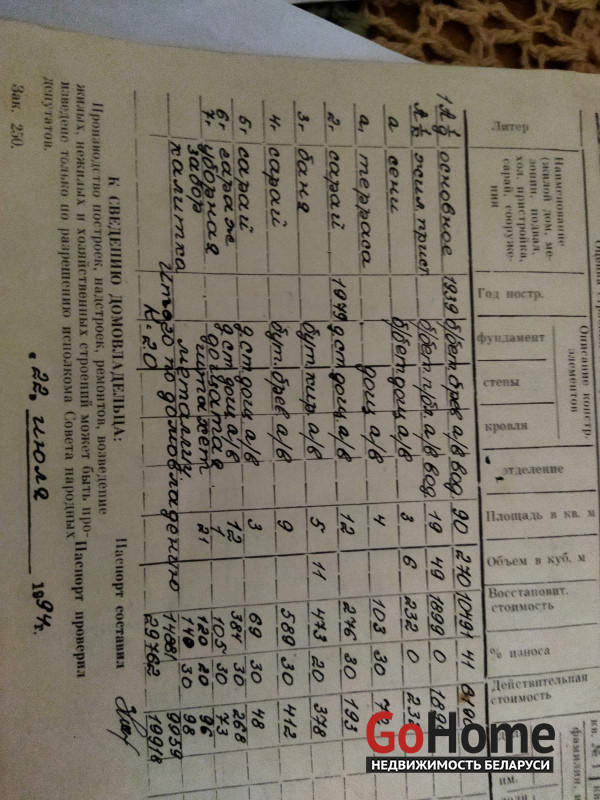 Литер
Наименование
Год постр.
Описание констр. элементов
фундамент
стены
кровля
отделение
Площадь в кв. м
Объем в куб. м
Восстановит. стоимость
% износа
Действительная стоимость
основное 1939 б/бет брев а/в вод 90 270 10491 41
жил. прист б/бет а/в вод 19 49 1899 0
а сени б/бет дощ а/в 3 6 232 0
а₁ терраса дощ 4 103 30 72
2. сарай 1949 д.ст дощ а/в 12 276 30 193
3. баня бут. кир а/в 5 11 473 20 378
4. сарай бут. брев а/в 9 589 30 412
5. сарай д.ст дощ а/в 3 69 30 48
6. гараж д.ст дощ а/в 12 384 30 268
7. уборная дощатая 1 105 30 73
забор штакет 21 120 20 96
калитка металич 140 30 98
Итого по домовладению 9959
К-2.0 29762 19918
К СВЕДЕНИЮ ДОМОВЛАДЕЛЬЦА:
Производство построек, надстроек, ремонтов, возведение
жилых, нежилых и хозяйственных строений может быть про-
изведено только по разрешению исполкома Совета народных
депутатов.
Паспорт составил
Паспорт проверил
„22„ июля 1994г.
Зак. 250.
GoHome
НЕДВИЖИМОСТЬ БЕЛАРУСИ